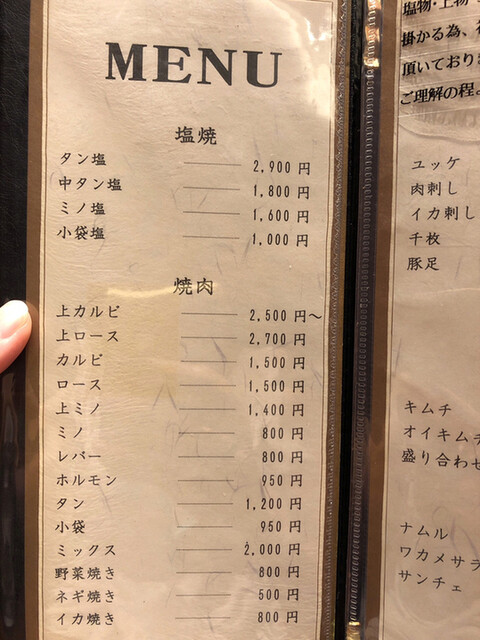 MENU
塩焼
タン塩 2,900 円
中タン塩 1,800 円
ミノ塩 1,600 円
小袋塩 1,000 円
焼肉
上カルビ 2,500 円～
上ロース 2,700 円
カルビ 1,500 円
ロース 1,500 円
上ミノ 1,400 円
ミノ 800 円
レバー 800 円
ホルモン 950 円
タン 1,200 円
小袋 950 円
ミックス 2,000 円
野菜焼き 800 円
ネギ焼き 500 円
イカ焼き 800 円
塩物・上物
掛かる為、
頂いており
ご理解の程
ユッケ
肉刺し
イカ刺し
千枚
豚足
キムチ
オイキムチ
盛り合わせ
ナムル
ワカメサラ
サンチェ